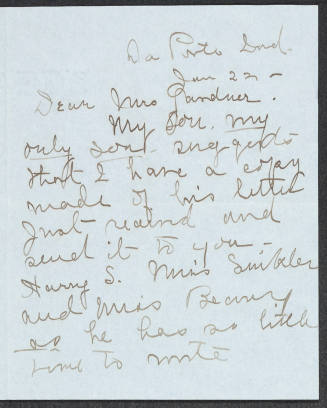 La Porte Ind.
Jan 22 -
Dear Mrs Gardner.
My son, my
only son suggests
that I have a copy
made of his letter
just received and
send it to you -
Harry S. Miss
and Miss
as he has so little
time to write